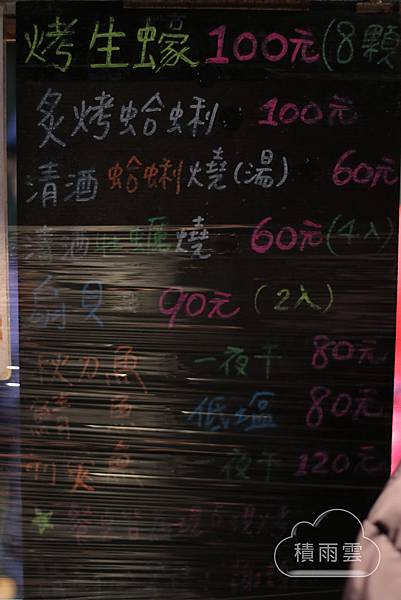 烤生蠔 100元(8顆
炙烤蛤蜊 100元
清酒蛤蜊燒(湯) 60元
清酒牡蠣燒 60元(4入)
扇貝 90元 (2入)
秋刀魚 一夜干 80元
鯖魚 低塩 80元
一夜干 120元
積雨雲